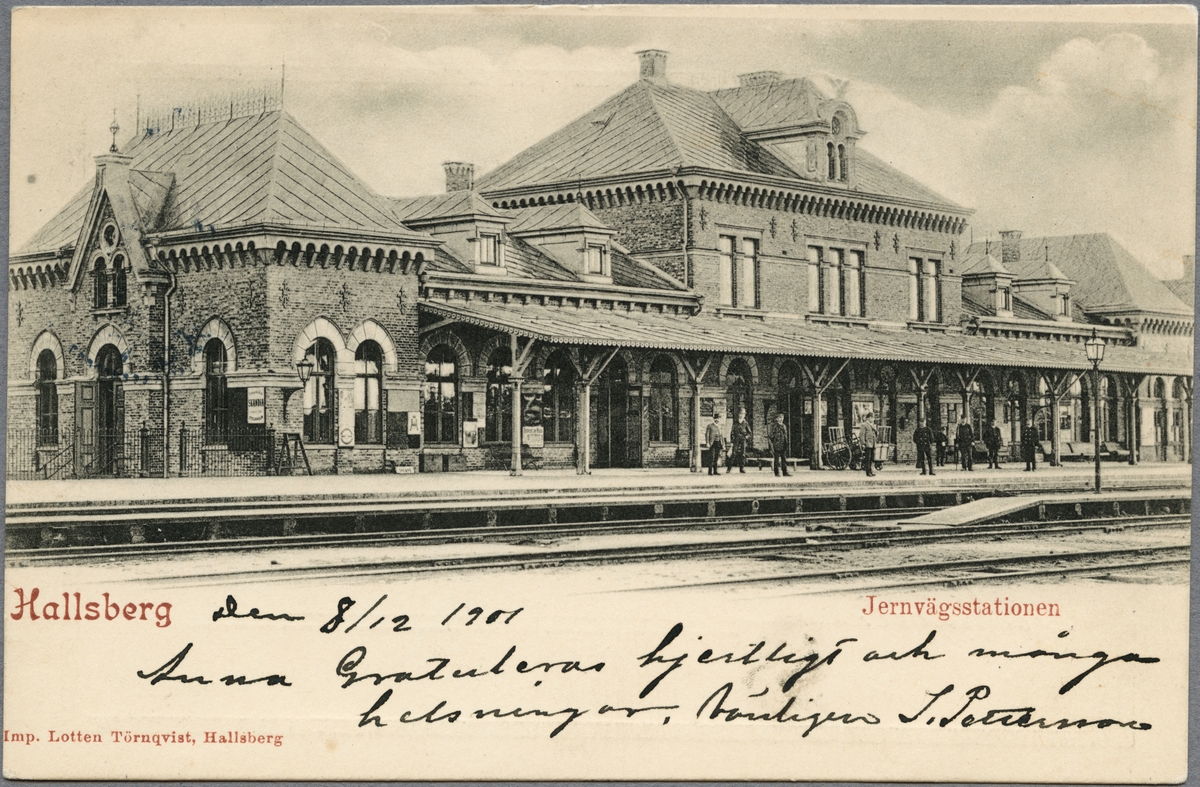 Hallsberg Den 8/12 1901 Jernvägsstationen
Anna Gratuleras hjertligt och många
helsningar, Vänligen S. Pettersson
Imp. Lotten Törnqvist, Hallsberg